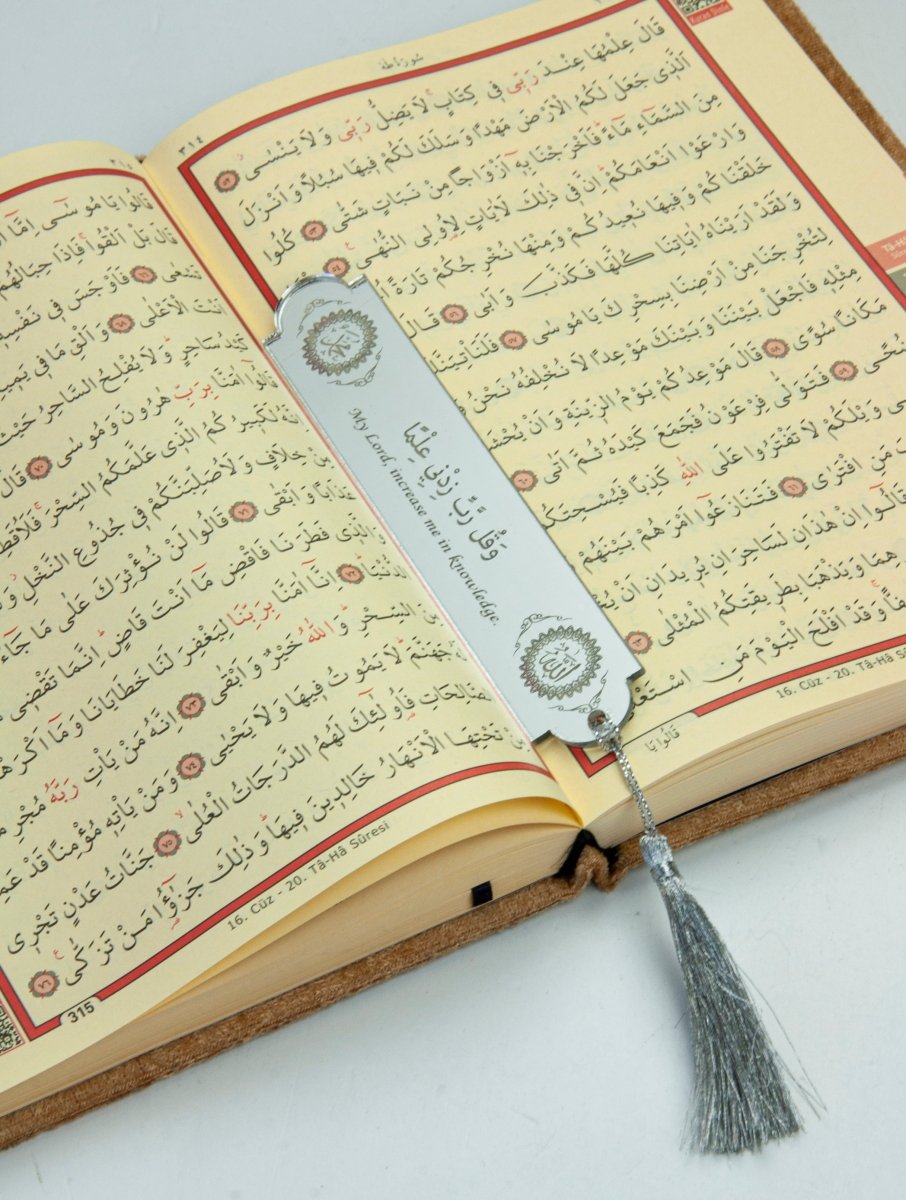 سُورَةُ طٰهٰ
٣١٤
Kuran Dinle
قَالَ عِلْمُهَا عِنْدَ رَبّ۪ي ف۪ي كِتَابٍۚ لَا يَضِلُّ رَبّ۪ي وَلَا يَنْسٰىۘ ٥٢
اَلَّذ۪ي جَعَلَ لَكُمُ الْاَرْضَ مَهْدًا وَسَلَكَ لَكُمْ ف۪يهَا سُبُلًا وَاَنْزَلَ
مِنَ السَّمَٓاءِ مَٓاءًۜ فَاَخْرَجْنَا بِه۪ٓ اَزْوَاجًا مِنْ نَبَاتٍ شَتّٰى ٥٣ كُلُوا
وَارْعَوْا اَنْعَامَكُمْۜ اِنَّ ف۪ي ذٰلِكَ لَاٰيَاتٍ لِاُو۬لِي النُّهٰى۟ ٥٤
خَلَقْنَاكُمْ وَف۪يهَا نُع۪يدُكُمْ وَمِنْهَا نُخْرِجُكُمْ تَارَةً
وَلَقَدْ اَرَيْنَاهُ اٰيَاتِنَا كُلَّهَا فَكَذَّبَ وَاَبٰى ٥٦ قَالَ
لِتُخْرِجَنَا مِنْ اَرْضِنَا بِسِحْرِكَ يَا مُوسٰى ٥٧ فَلَنَأْتِيَنَّكَ
مِثْلِه۪ فَاجْعَلْ بَيْنَنَا وَبَيْنَكَ مَوْعِدًا لَا نُخْلِفُهُ نَحْنُ
مَكَانًا سُوًى ٥٨ قَالَ مَوْعِدُكُمْ يَوْمُ الزّ۪ينَةِ وَاَنْ
ضُحًى ٥٩ فَتَوَلّٰى فِرْعَوْنُ فَجَمَعَ كَيْدَهُ ثُمَّ اَتٰى ٦٠
وَيْلَكُمْ لَا تَفْتَرُوا عَلَى اللّٰهِ كَذِبًا فَيُسْحِتَكُمْ
مَنِ افْتَرٰى ٦١ فَتَنَازَعُٓوا اَمْرَهُمْ بَيْنَهُمْ
قَالُٓوا اِنْ هٰذَانِ لَسَاحِرَانِ يُر۪يدَانِ اَنْ
وَيَذْهَبَا بِطَر۪يقَتِكُمُ الْمُثْلٰى ٦٣
وَقَدْ اَفْلَحَ الْيَوْمَ مَنِ
16. Cüz - 20. Tâ-Hâ
قَالُوا يَا
وَقُلْ رَبِّ زِدْنِي عِلْمًا
My Lord, increase me in knowledge.
اللّٰه
قَالُوا يَا مُوسٰٓى اِمَّٓا
قَالَ بَلْ اَلْقُواۚ فَاِذَا حِبَالُهُمْ
تَسْعٰى ٦٦ فَاَوْجَسَ ف۪ي نَفْسِه۪
اَنْتَ الْاَعْلٰى ٦٨ وَاَلْقِ مَا ف۪ي يَم۪ينِكَ
كَيْدُ سَاحِرٍۜ وَلَا يُفْلِحُ السَّاحِرُ حَيْثُ
قَالُٓوا اٰمَنَّا بِرَبِّ هٰرُونَ وَمُوسٰى ٧٠ قَالَ
لَكَب۪يرُكُمُ الَّذ۪ي عَلَّمَكُمُ السِّحْرَۚ
مِنْ خِلَافٍ وَلَاُصَلِّبَنَّكُمْ ف۪ي جُذُوعِ النَّخْلِۘ
عَذَابًا وَاَبْقٰى ٧١ قَالُوا لَنْ نُؤْثِرَكَ عَلٰى مَا جَٓاءَنَا
وَالَّذ۪ي فَطَرَنَا فَاقْضِ مَٓا اَنْتَ قَاضٍۜ اِنَّمَا تَقْض۪ي
الدُّنْيَاۜ ٧٢ اِنَّٓا اٰمَنَّا بِرَبِّنَا لِيَغْفِرَ لَنَا خَطَايَانَا وَمَٓا
السِّحْرِۜ وَاللّٰهُ خَيْرٌ وَاَبْقٰى ٧٣ اِنَّهُ مَنْ يَأْتِ رَبَّهُ
جَهَنَّمَۜ لَا يَمُوتُ ف۪يهَا وَلَا يَحْيٰى ٧٤ وَمَنْ يَأْتِه۪ مُؤْمِنًا قَدْ
الصَّالِحَاتِ فَاُو۬لٰٓئِكَ لَهُمُ الدَّرَجَاتُ الْعُلٰىۙ ٧٥ جَنَّاتُ عَدْنٍ تَجْر۪ي
مِنْ تَحْتِهَا الْاَنْهَارُ خَالِد۪ينَ ف۪يهَاۜ وَذٰلِكَ جَزٰٓؤُ۬ا مَنْ تَزَكّٰى۟ ٧٦
16. Cüz - 20. Tâ-Hâ Sûresi
315